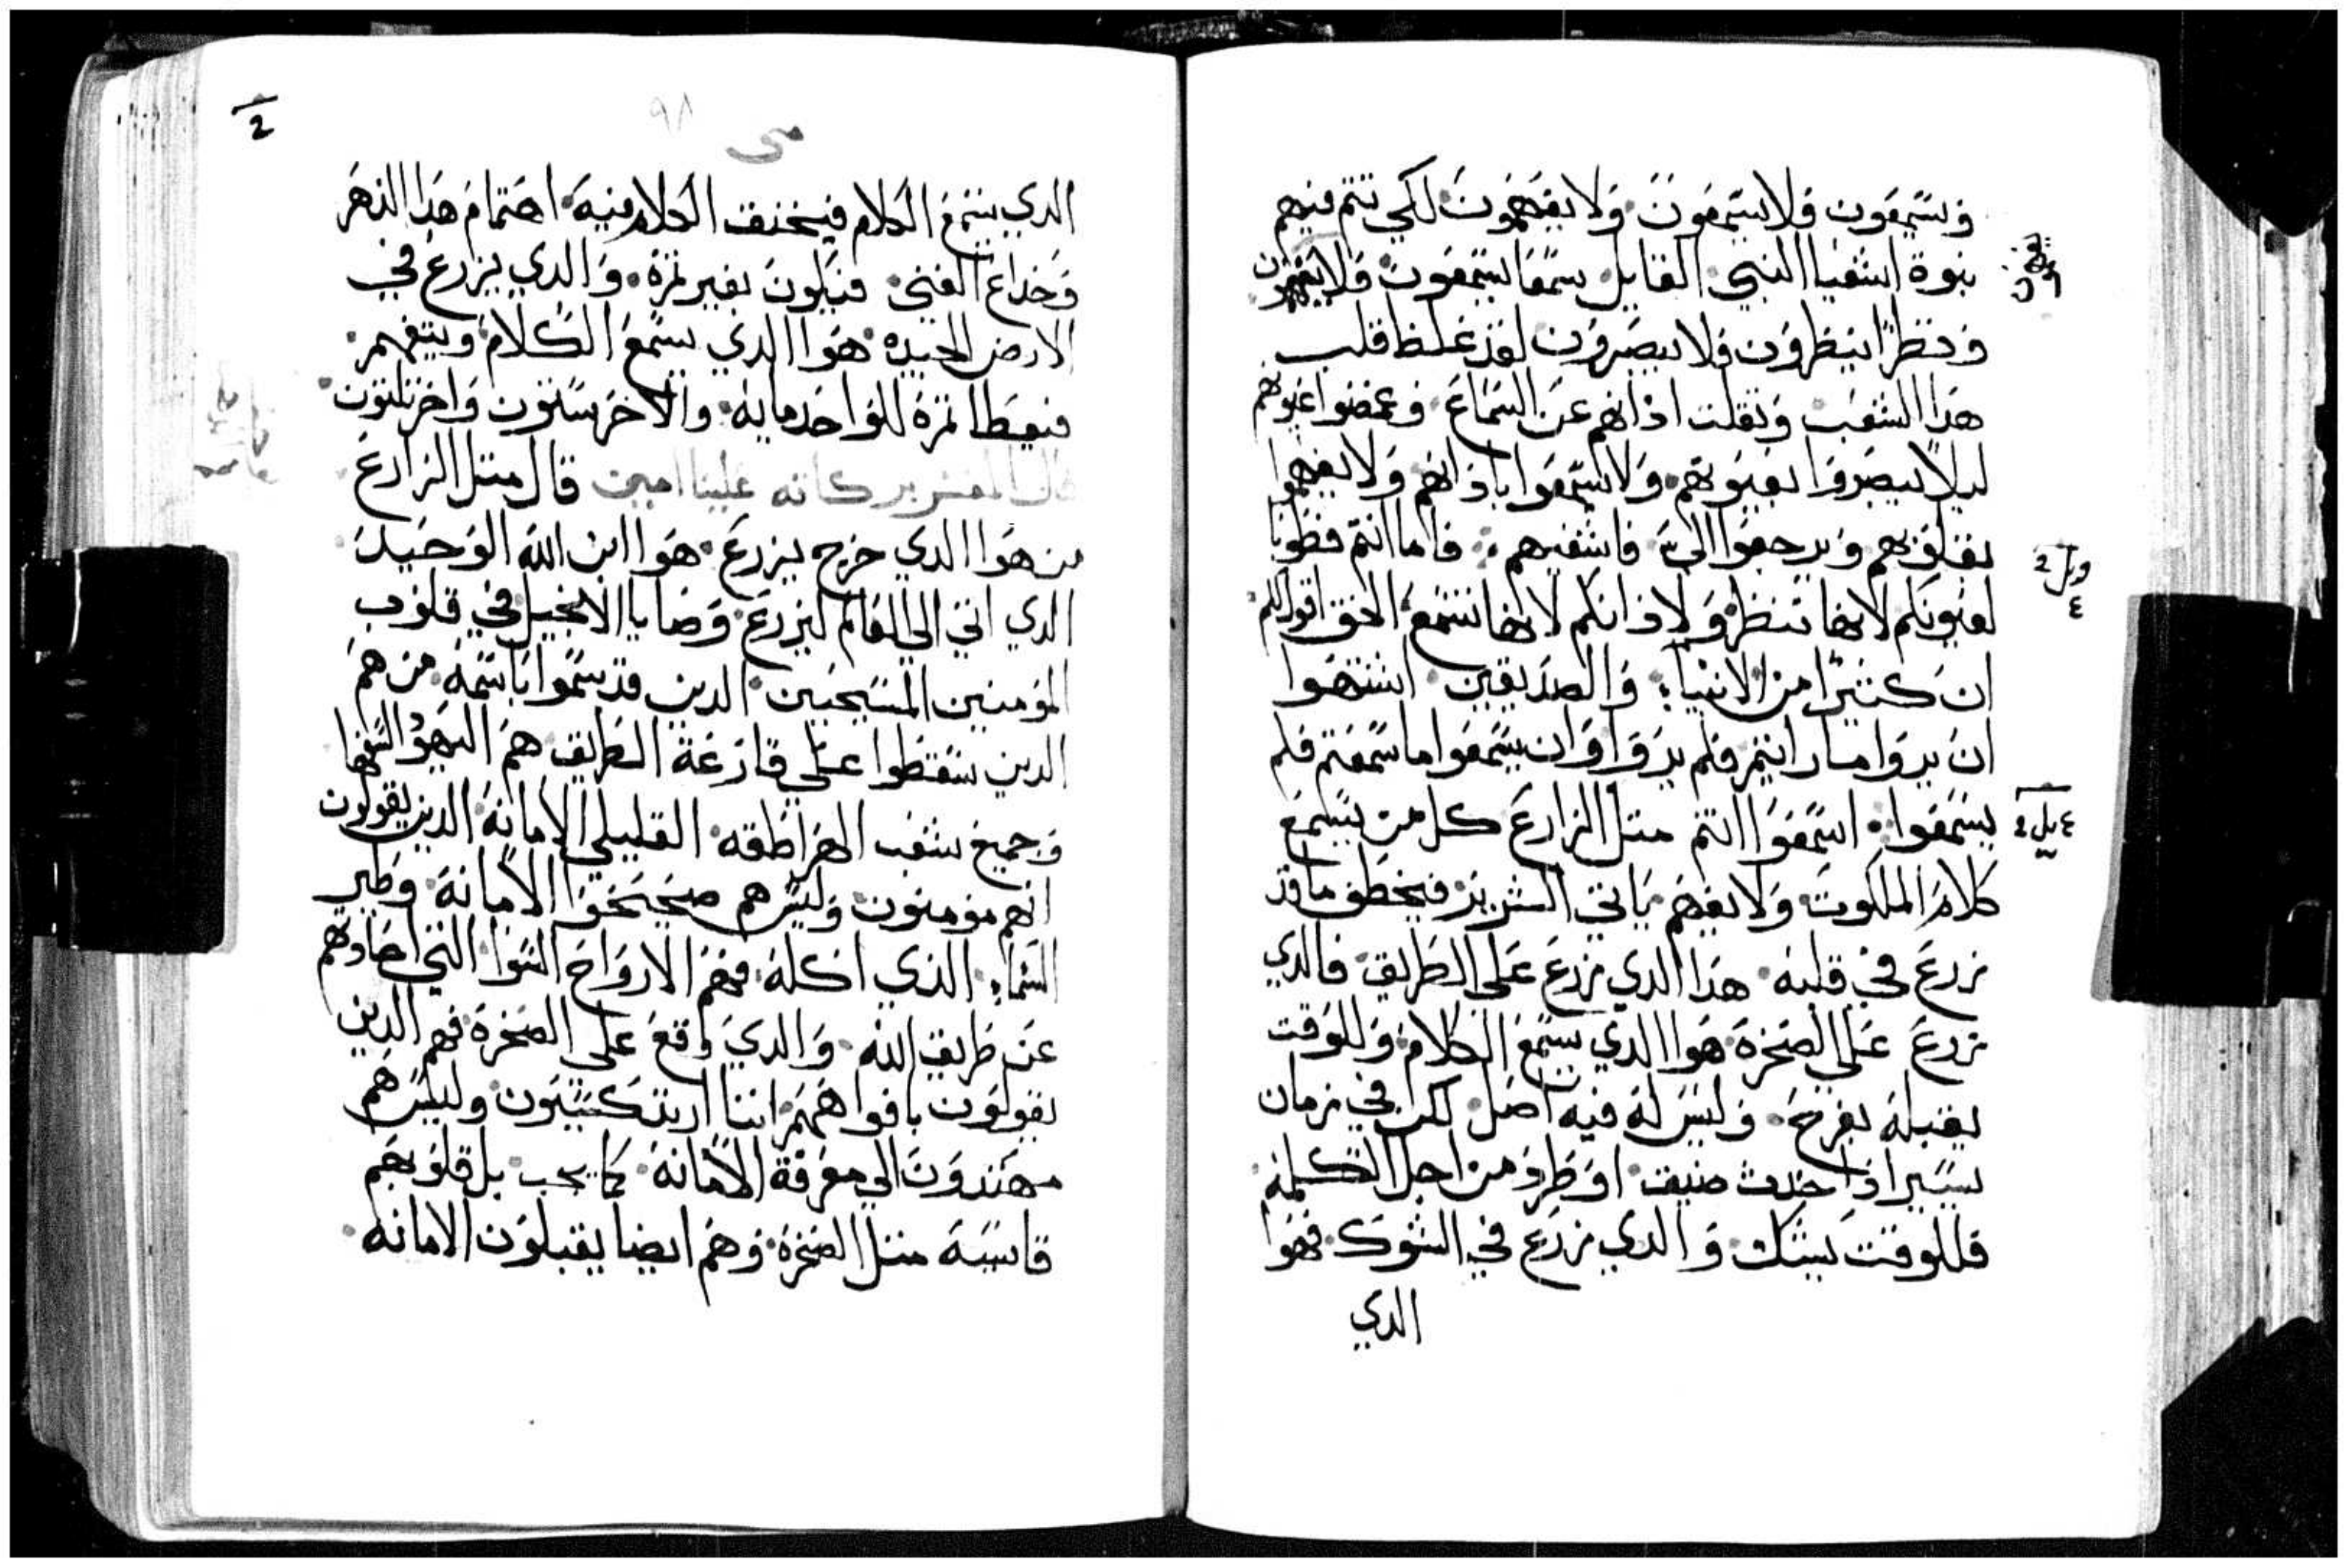 ويسمعون ولا يسمعون ولا يفهمون لكي تتم فيهم
نبوة اشعيا النبي القايل سمعا يسمعون ولا يفهمون
ونظرا ينظرون ولا يبصرون لقد غلظ قلب
هدا الشعب وتقلت اذانهم عن السماع وغمضوا عيونهم
ليلا يبصروا بعيونهم ولا يسمعوا باذانهم ولا يفهموا
بقلوبهم ويرجعوا الي فاشفيهم فاما انتم فطوبا
لعيونكم لانها تنظر ولاذانكم لانها تسمع الحق اقول لكم
ان كتيرا من الانبياء والصديقين اشتهوا
ان يروا ما رايتم فلم يروا وان يسمعوا ما سمعتم فلم
يسمعوا اسمعوا انتم متل الزارع كل من يسمع
كلام الملكوت ولا يفهم ياتي الشرير فيخطف ما قد
زرع في قلبه هدا الدي زرع على الطريق فالدي
زرع على الصخرة هوا الدي يسمع الكلام وللوقت
يقبله بفرح وليس له فيه اصل لكن في زمان
يسير اذا حدث ضيق او طرد من اجل الكلمة
فللوقت يشك والدي زرع في الشوك فهوا
الدي
متى
٩٨
الدي يسمع الكلام فيخنق الكلام فيه اهتمام هدا الدهر
وخداع الغنى فيكون بغير تمرة والدي يزرع في
الارض الجيده هوا الدي يسمع الكلام ويتفهم
فيعطا تمرة للواحد مايه والاخر ستون واخر تلتون
قال المفسر بركاته علينا امين قال متل الزارع
من هوا الدي خرج يزرع هوا ابن الله الوحيد
الدي اتى الى العالم ليزرع وصايا الانجيل في قلوب
المومنين المسيحيين الدين قد سموا باسمه من هم
الدين سقطوا على قارعة الطريق هم اليهود السفها
وجميع شعب الهراطقه القليلي الامانة الدين يقولون
انهم مومنون وليس هم صحيحوا الامانة وطير
السماء الذي اكله فهم الارواح السوا التي احادهم
عن طريق الله والدي واقع على الصخرة فهم الدين
يقولون بافواههم اننا ارتدكسيون وليس هم
مهتدون الي معرفة الامانة كما يجب بل قلوبهم
قاسية متل الصخرة وهم ايضا يقبلون الامانه